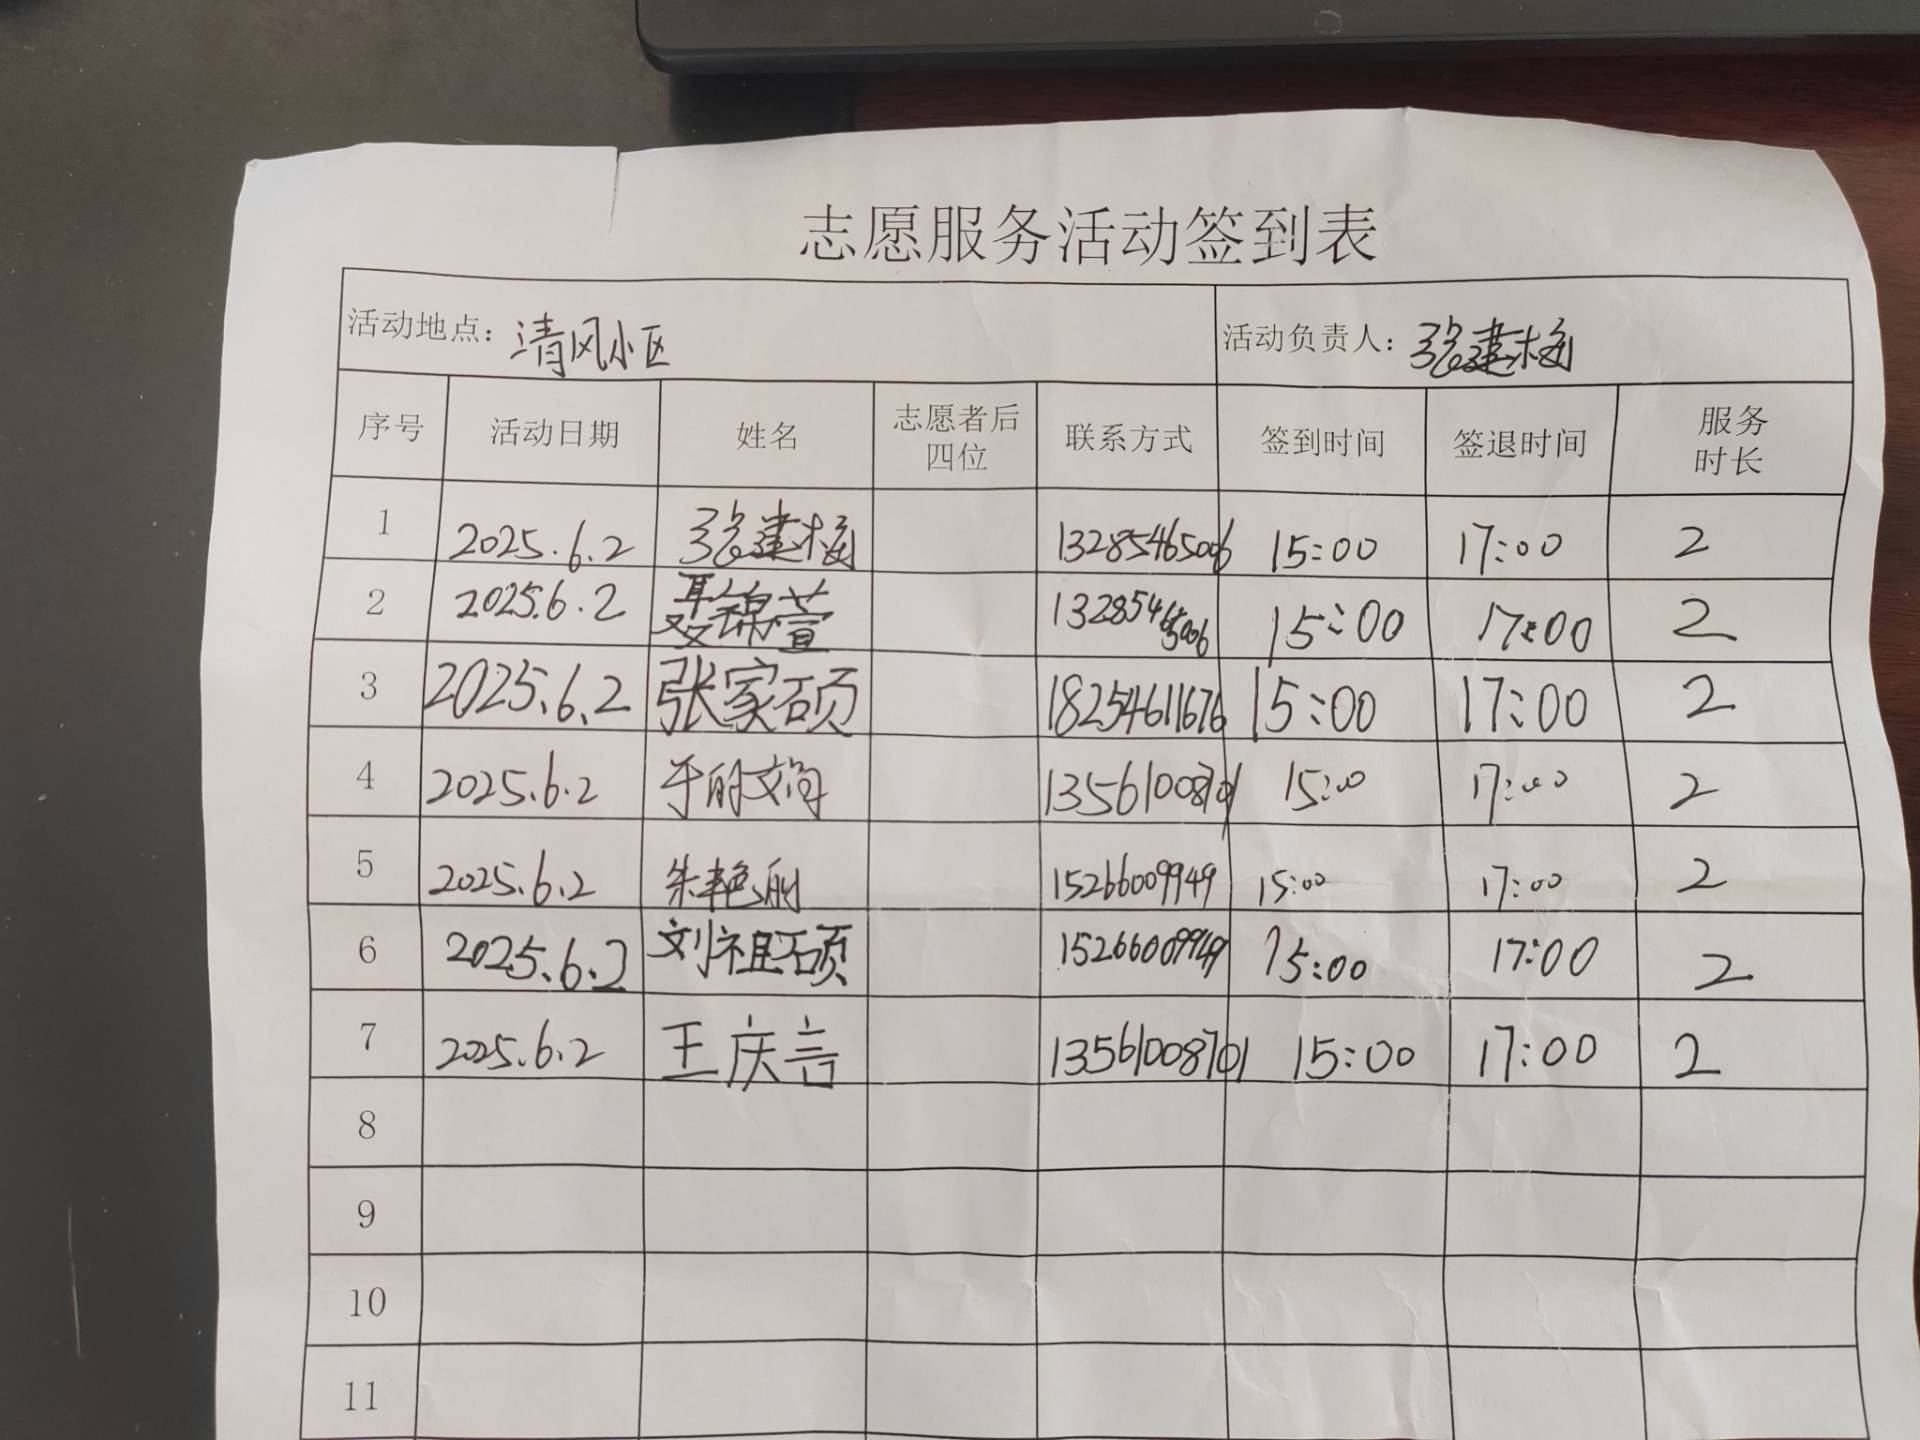 志愿服务活动签到表
活动地点：清风小区 活动负责人：张建梅
序号 活动日期 姓名 志愿者后四位 联系方式 签到时间 签退时间 服务时长
1 2025.6.2 张建梅 13285465006 15:00 17:00 2
2 2025.6.2 聂锦萱 13285465006 15:00 17:00 2
3 2025.6.2 张家硕 18254611676 15:00 17:00 2
4 2025.6.2 13561008701 15:00 17:00 2
5 2025.6.2 15266009949 15:00 17:00 2
6 2025.6.2 刘祖硕 15266009949 15:00 17:00 2
7 2025.6.2 王庆言 13561008701 15:00 17:00 2
8
9
10
11